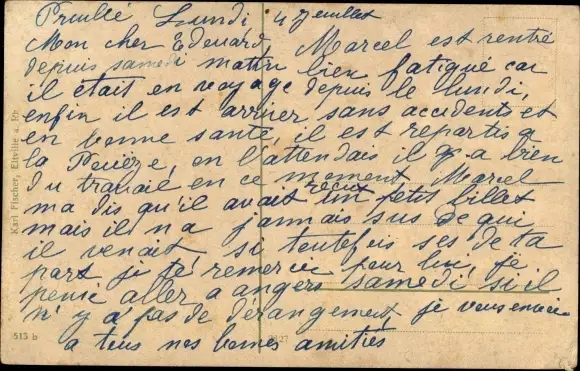 Pruillé Lundi 4 Jeuillet
Mon cher Edouard, Marcel est rentré
depuis samedi matin bien fatigué car
il était en voyage depuis le lundi,
enfin il est arriver sans accidents et
en bonne santé, il est repartis a
la Pouëze, on l'attendais il y a bien
du travail en ce moment Marcel
ma dis qu'il avait recut un petit billet
mais il na jamais sus de qui
il venait, si toutefois ses de ta
part je te remercie pour lui, je
pense aller a angers samedi si il
n'y a pas de dérangement, je vous envoie
a tous nos bonnes amitiés
Karl Fischer, Eltville a. Rh.
513 b